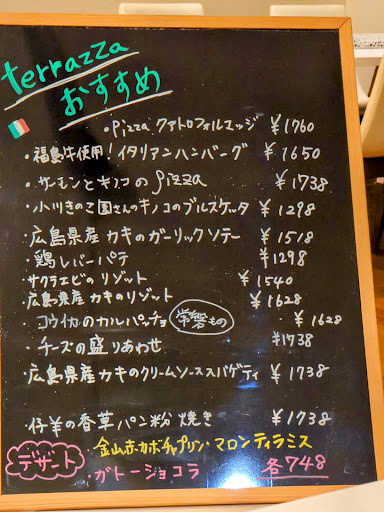 terrazza
おすすめ
・Pizza クァトロフォルマッジ ¥1760
・福島牛使用!イタリアンハンバーグ ¥1650
・サーモンとキノコの pizza ¥1738
・小川きのこ園さんのキノコのブルスケッタ ¥1298
・広島県産カキのガーリックソテー ¥1518
・鶏レバーパテ ¥1298
サクラエビのリゾット ¥1540
・広島県産カキのリゾット ¥1628
・コウイカのカルパッチョ 常磐もの ¥1628
・チーズの盛りあわせ ¥1738
・広島県産カキのクリームソーススパゲティ ¥1738
・仔羊の香草パン粉焼き ¥1738
デザート ・金山赤カボチャプリン・マロンティラミス
・ガトーショコラ 各748